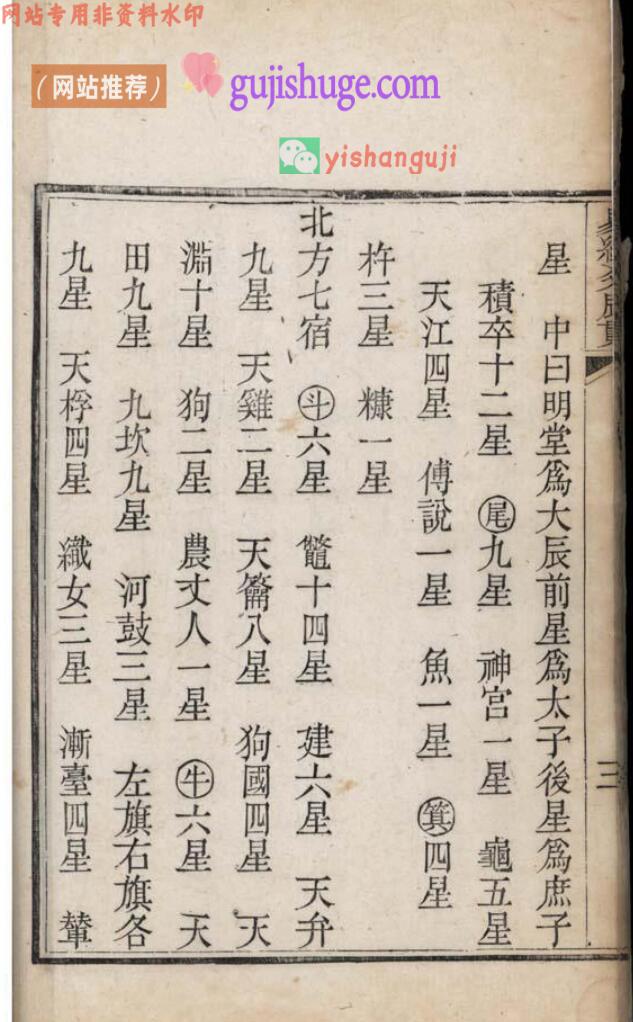 网站专用非资料水印
（网站推荐）
gujishuge.com
yishanguji
三
星　中曰明堂爲大辰前星爲太子後星爲庶子
積卒十二星　尾九星　神宮一星　龜五星
天江四星　傅說一星　魚一星　箕四星
杵三星　糠一星
北方七宿　斗六星　鼈十四星　建六星　天弁
九星　天雞二星　天籥八星　狗國四星　天
淵十星　狗二星　農丈人一星　牛六星　天
田九星　九坎九星　河鼓三星　左旗右旗各
九星　天桴四星　織女三星　漸臺四星　輦